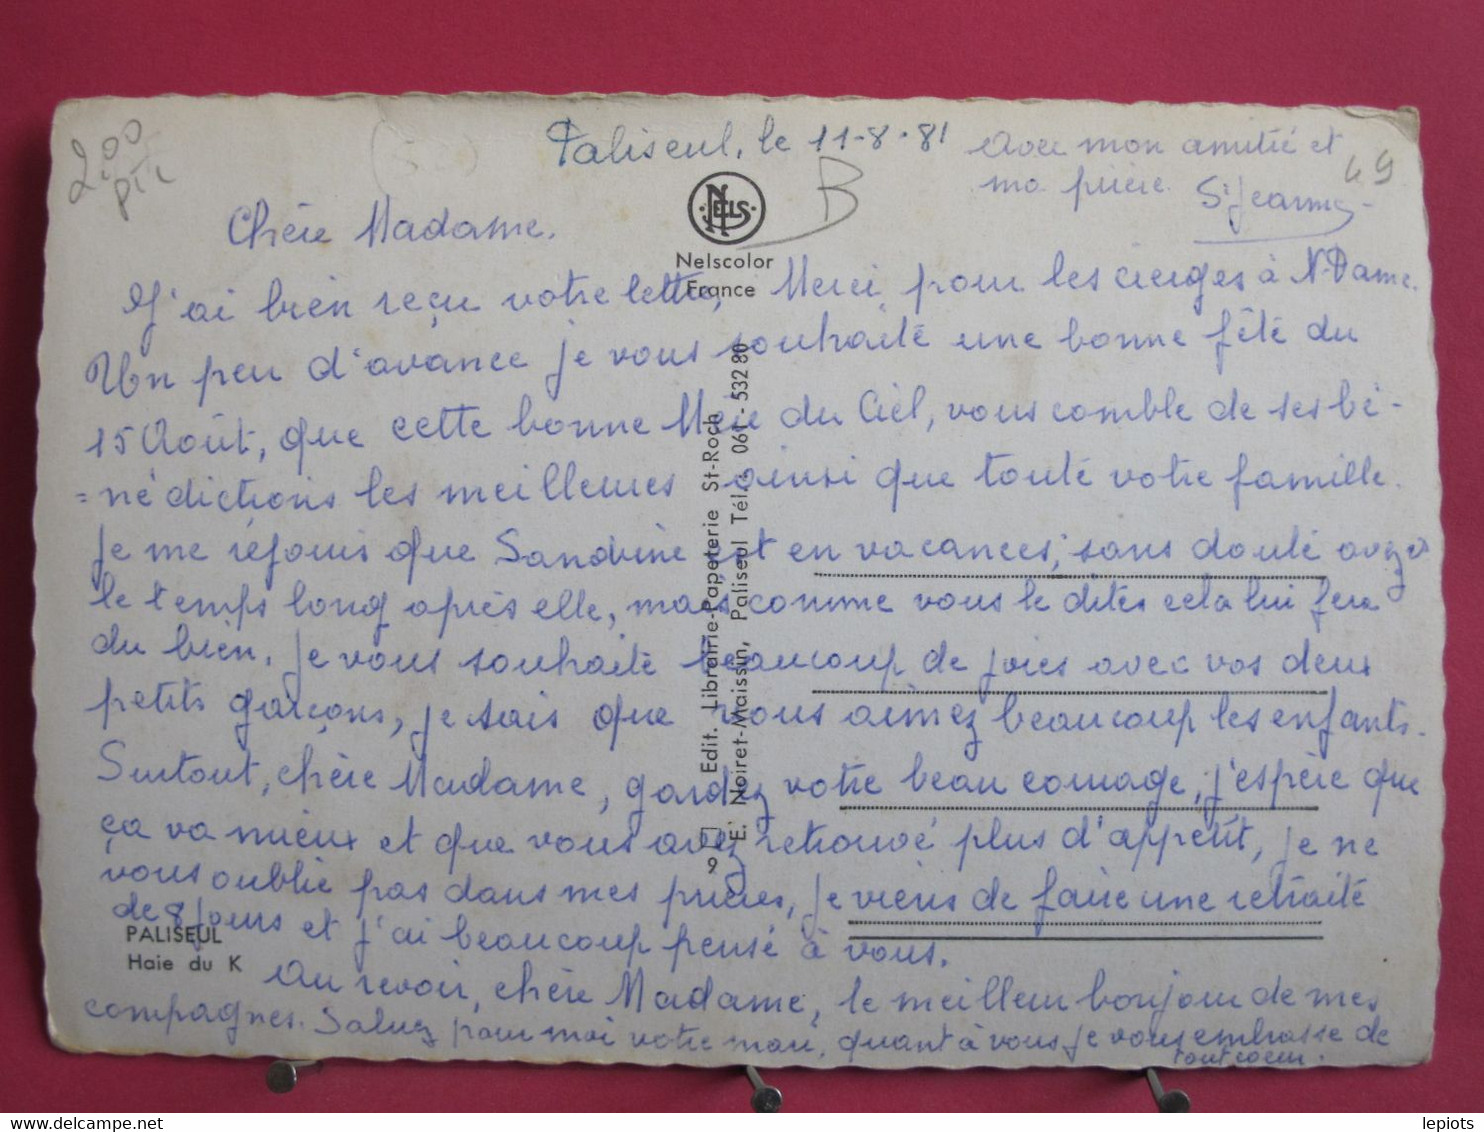 200
Paliseul, le 11-8-81
Avec mon amitié et
ma prière.
Sr Jeanne
49
B
NELS
Nelscolor
France
Chère Madame.
J'ai bien reçu votre lettre, Merci pour les cierges à N-Dame.
Un peu d'avance je vous souhaite une bonne fête du
15 Août, que cette bonne Mère du Ciel, vous comble de ses bé-
=nédictions les meilleures ainsi que toute votre famille.
Je me réjouis que Sandrine est en vacances; sans doute avez
le temps long après elle, mais comme vous le dites cela lui fera
du bien. Je vous souhaite beaucoup de joies avec vos deux
petits garçons, je sais que vous aimez beaucoup les enfants.
Surtout, chère Madame, gardez votre beau courage, j'espère que
ça va mieux et que vous avez retrouvé plus d'appétit, je ne
vous oublie pas dans mes prières, je viens de faire une retraite
de 8 jours et j'ai beaucoup pensé à vous.
Au revoir, chère Madame, le meilleur bonjour de mes
compagnes. Saluez pour moi votre mari, quant à vous je vous embrasse de
tout coeur.
PALISEUL
Haie du K
9 Edit. Librairie-Papeterie St-Roch
E. Noiret-Maissin, Paliseul Tél. : 061 - 532 80
delcampe.net
lepiots